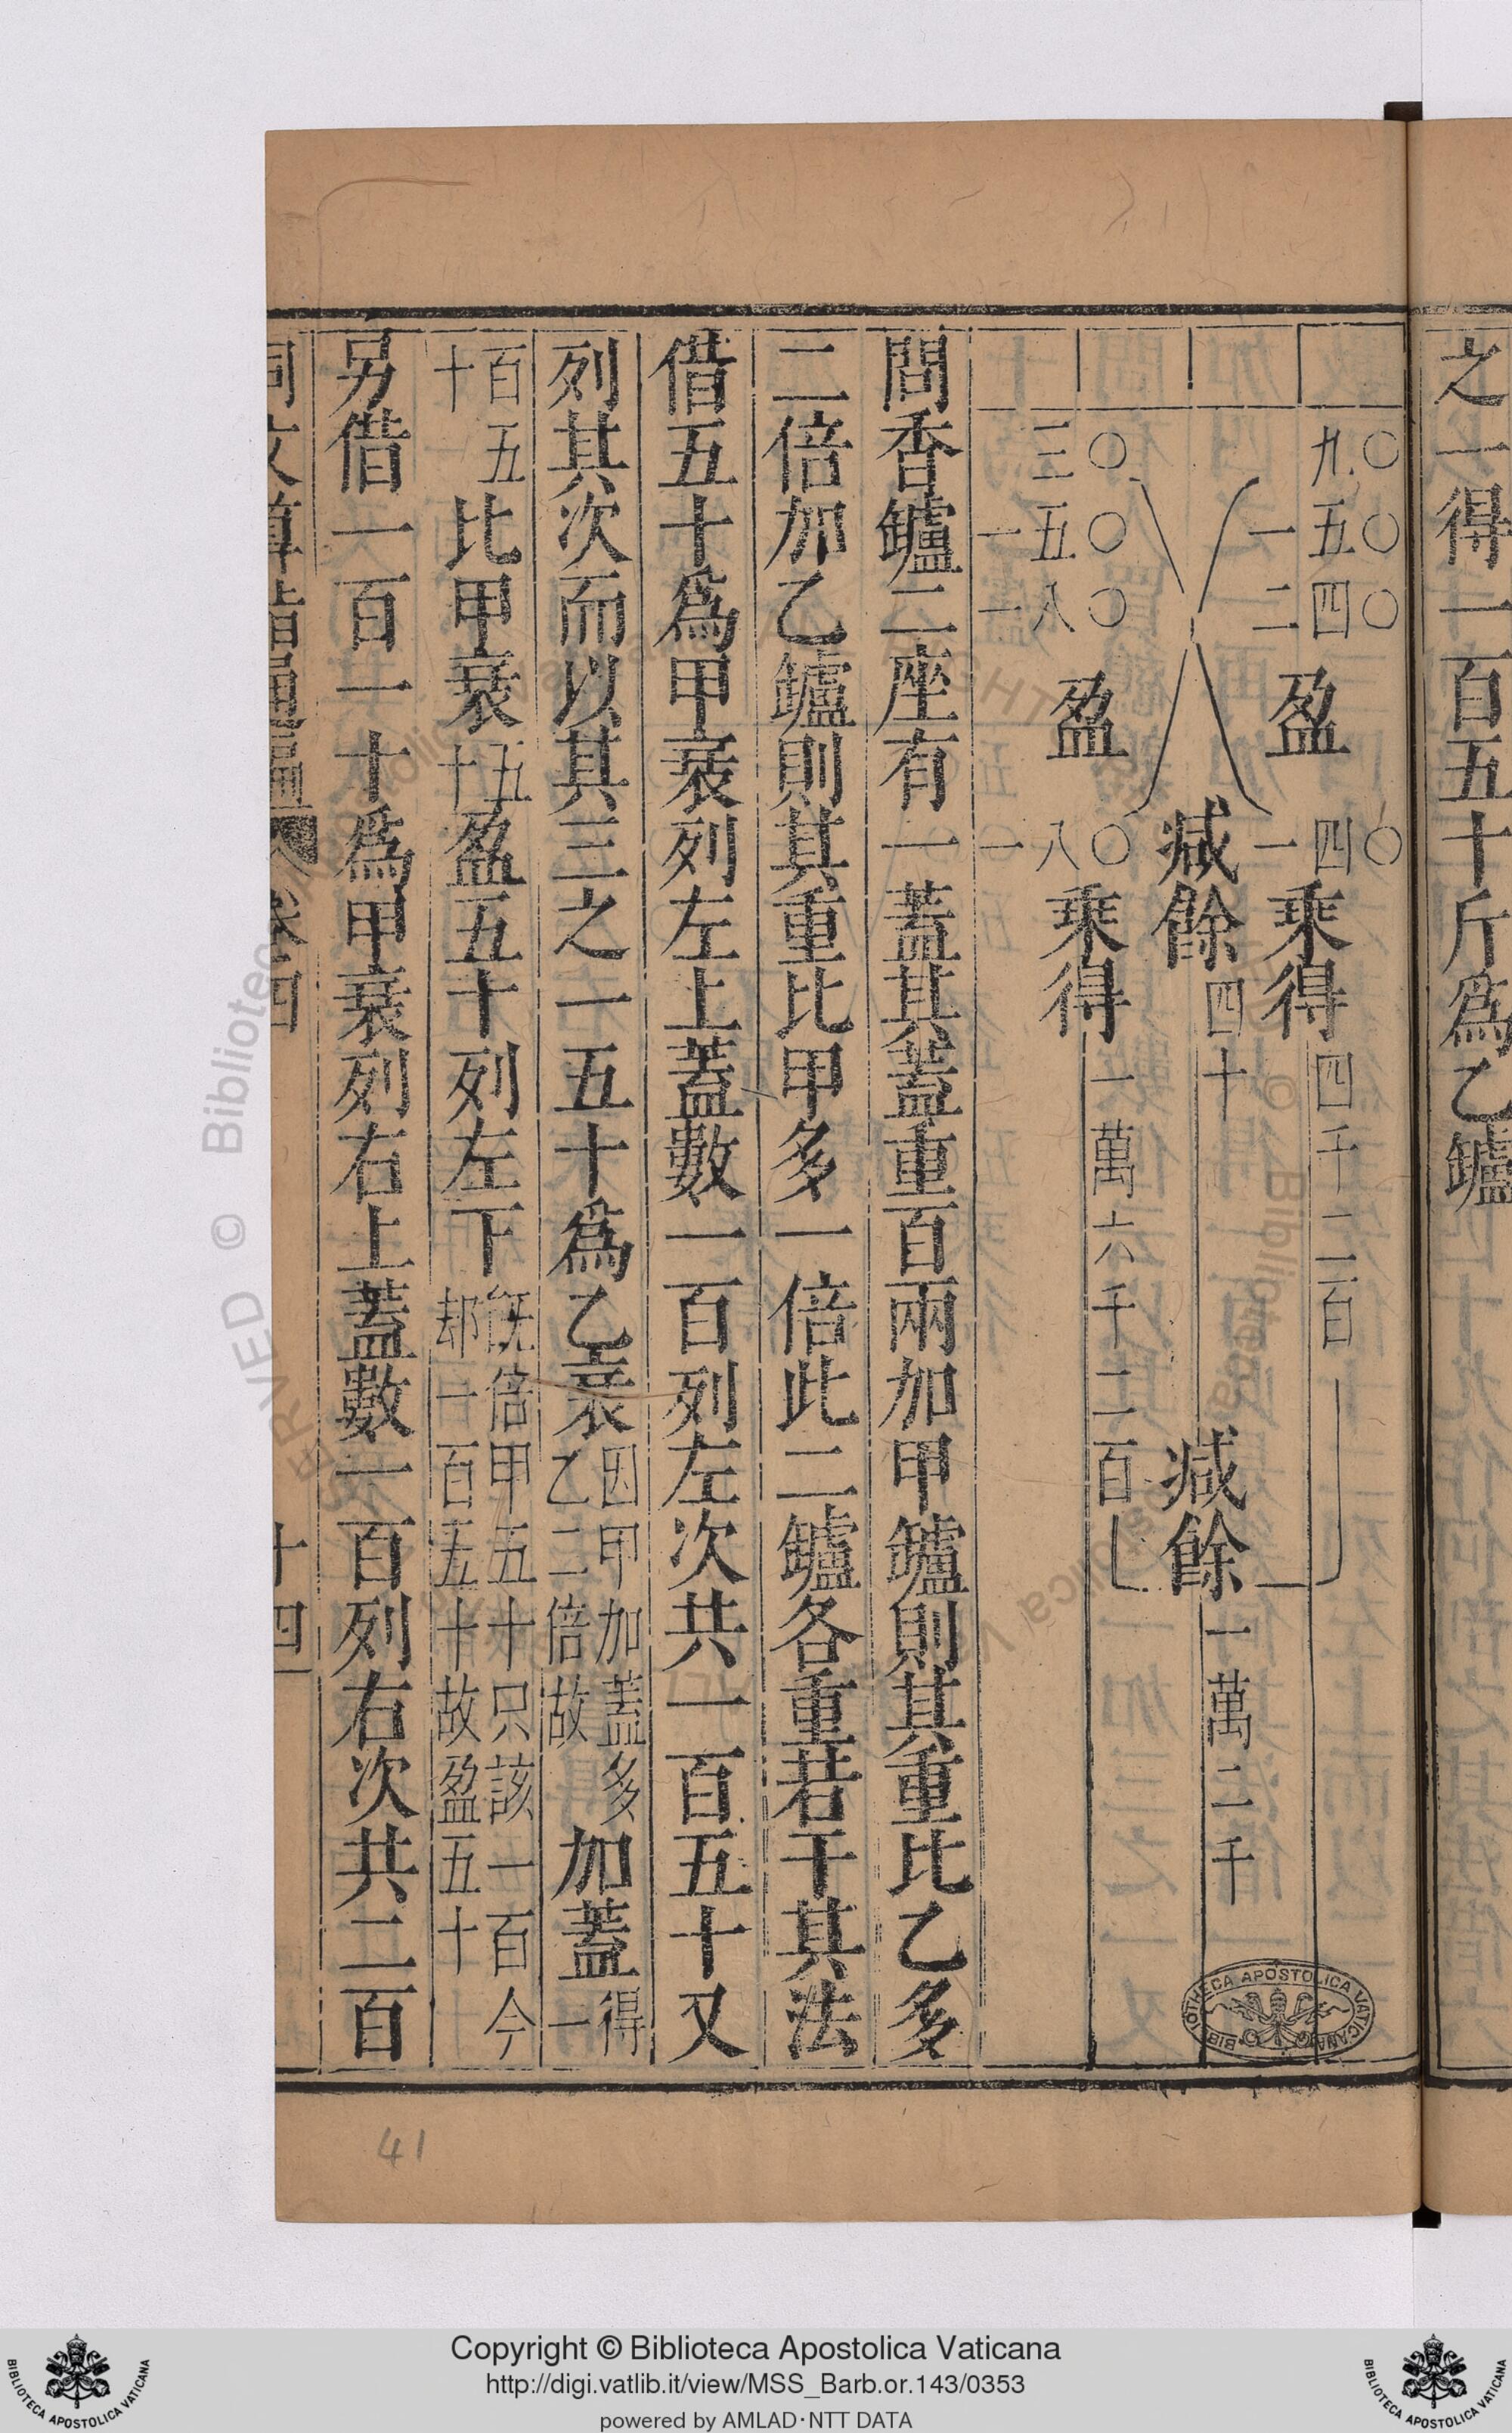 之一得一百五十斤爲乙鑪
○○○ ○
九五四 四
一二 一
盈 乘得 四千二百
減餘 四十 減餘 一萬二千
○○○ ○
三五八 八
一一 一
盈 乘得 一萬六千二百
問香鑪二座有一蓋其蓋重百兩加甲鑪則其重比乙多
二倍加乙鑪則其重比甲多一倍此二鑪各重若干其法
借五十爲甲衰列左上蓋數一百列左次共一百五十又
列其次而以其三之一五十爲乙衰因甲加蓋多乙二倍故加蓋得一
百五十比甲衰五十盈五十列左下既倍甲五十只該一百今却一百五十故盈五十
另借一百一十爲甲衰列右上蓋數一百列右次共二百
同文算指通編 卷四 十四
41
BIBLIOTHECA APOSTOLICA VATICANA
Copyright © Biblioteca Apostolica Vaticana
http://digi.vatlib.it/view/MSS_Barb.or.143/0353
powered by AMLAD·NTT DATA